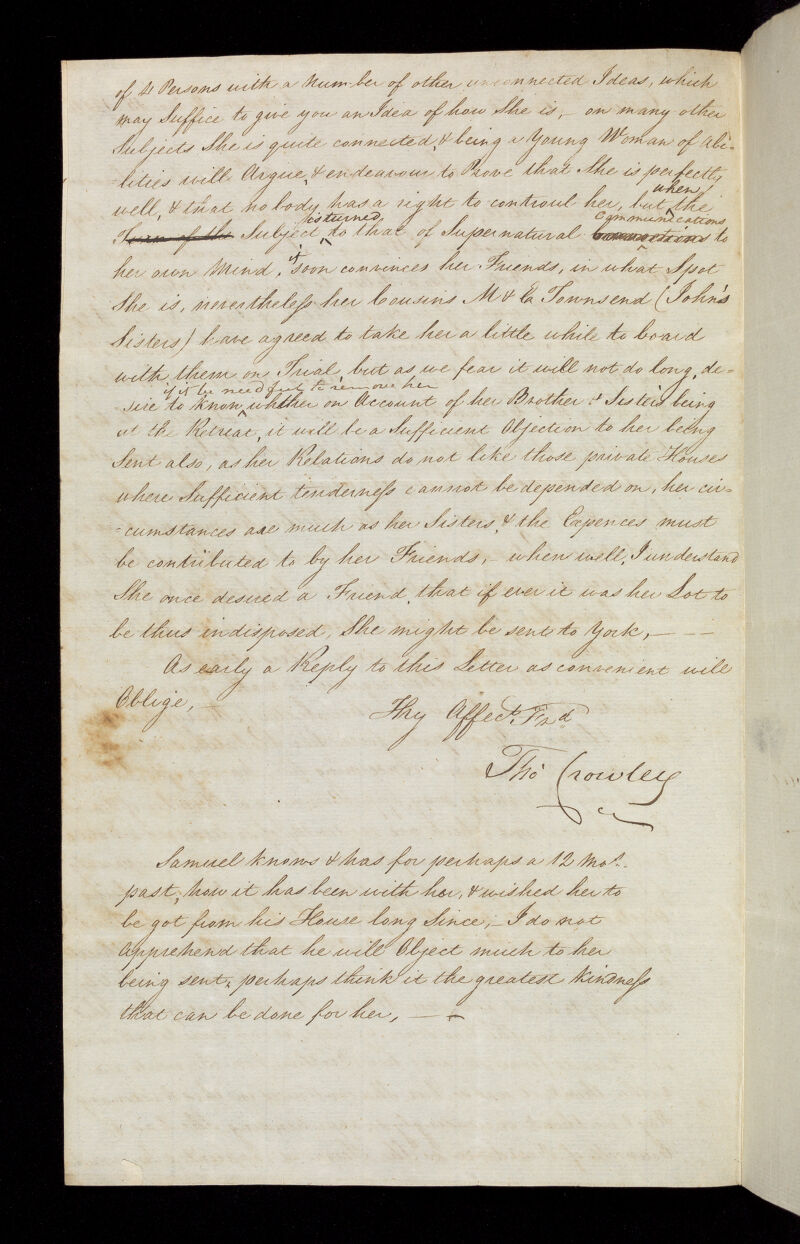 of 4 Persons with a Number of other unconnected Ideas, which
may Suffice to give you an Idea of how She is, – on many other
Subjects She is quite connected, & being a Young Woman of Abi-
-lities will Argue, & endeavour to Prove that She is perfectly
well, & that no body has a right to controul her, but when the
Turn of the Subject is turned to that of Supernatural Communications to
her own Mind, it soon convinces her Friends, in what Spot
She is, nevertheless her Cousins M & E Townsend (John's
Sisters) have agreed to take her a little while to board
with them on Trial, but as we fear it will not do long, de-
-sire to know, if it be needful to remove her whether on Account of her Brother & Sister's being
at the Retreat, it will be a Sufficient Objection to her being
Sent also, as her Relations do not like those private Houses
where Sufficient tenderness cannot be depended on, her cir-
-cumstances are much as her Sisters, & the Expences must
be contributed to by her Friends, – when well, I understand
She once desired a Friend, that if ever it was her Lot to
be thus indisposed, She might be sent to York, – – –
As early a Reply to this Letter as convenient will
Oblige, –
Thy Affect. Frd
Tho Crowley
Samuel knows & has for perhaps a 12 Mo.
past, how it has been with her, & wished her to
be got from his House long Since, – I do not
apprehend that he will Object much to her
being sent, perhaps think it the greatest Kindness
that can be done for her, – –